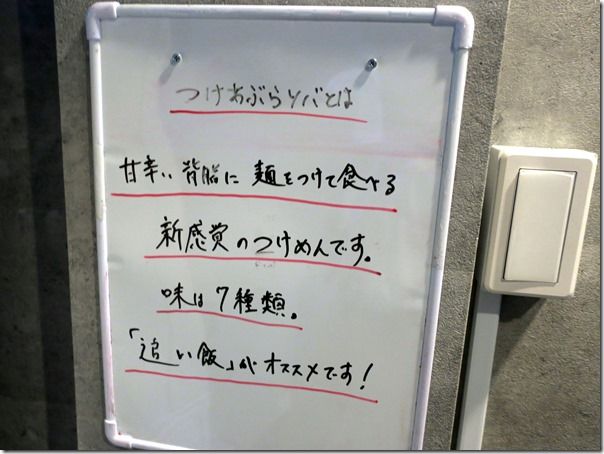 つけあぶらソバとは
甘辛い背脂に麺をつけて食べる
新感覚のつけめんです。
味は7種類。
「追い飯」がオススメです!